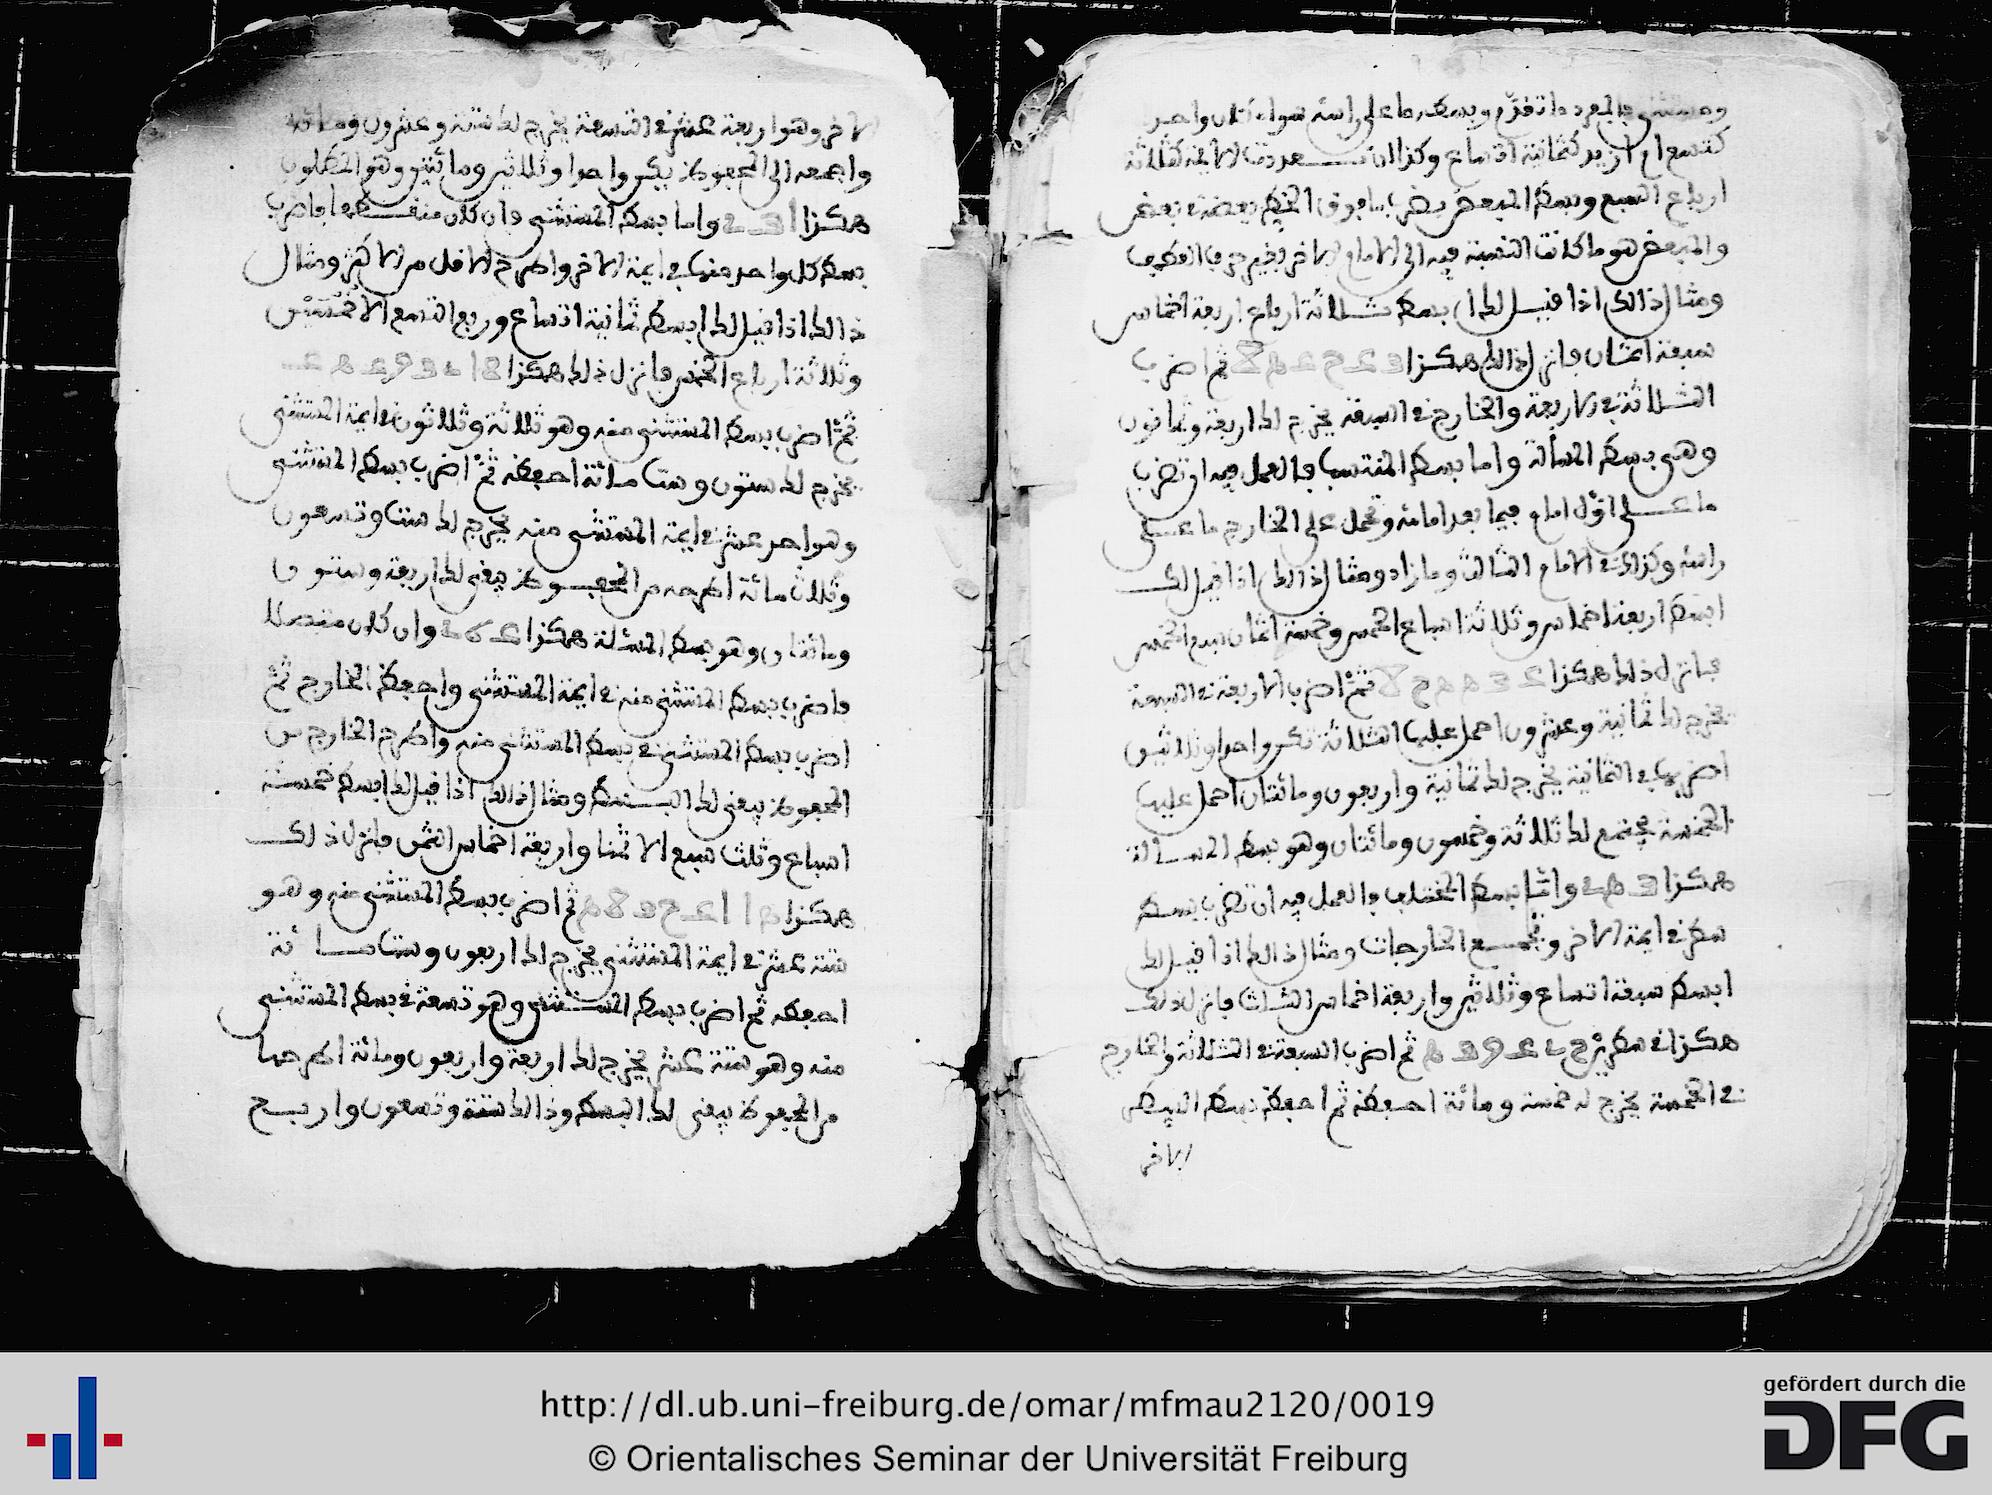 ومستثنى فالمفرد ما تقدم وبسطه ما على راسه سواء كان واحدا
كتسع او ازيد كثمانية اتساع وكذا ان تعددت الايمة كثلاثة
ارباع السبع وبسط المبعض بضرب ما فوق الخط بعضه في بعض
والمبعض هو ما كانت النسبة فيه الى الامام الاخر بغير حرف العطف
ومثال ذالك اذا قيل لك ابسط ثلاثة ارباع اربعة اخماس
سبعة اثمان فانزل ذالك هكذا ثم اضرب
الثلاثة في الاربعة والخارج في السبعة يخرج لك اربعة وثمانون
وهي بسط المسألة واما بسط المنتسب فالعمل فيه ان تضرب
ما على اول امام فيما بعد امامه وتحمل على الخارج ما على
راسه وكذالك في الامام الثالث وما زاد ومثال ذالك اذا قيل لك
ابسط اربعة اخماس وثلاثة اسباع الخمس وخمسة اثمان سبع الخمس
فانزل ذلك هكذا ثم اضرب الاربعة في السبعة
يخرج لك ثمانية وعشرون احمل عليها الثلاثة تكن واحدا وثلاثين
اضربها في الثمانية يخرج لك ثمانية واربعون ومائتان احمل عليها
الخمسة يجتمع لك ثلاثة وخمسون ومائتان وهو بسط المسألة
هكذا واما بسط المختلف فالعمل فيه ان تضرب بسط
سطر في ايمة الاخر وتجمع الخارجات ومثال ذالك اذا قيل لك
ابسط سبعة اتساع وثلاثين واربعة اخماس الثلث فانزل ذلك
هكذا في سطرين ثم اضرب السبعة في الثلاثة والخارج
في الخمسة يخرج لك خمسة ومائة احفظه ثم احفظ بسط السطر
الاخر
الاخر وهو اربعة عشر في التسعة يخرج لك ستة وعشرون ومائة
واجمعه الى المحفوظ يكن واحدا وثلاثين ومائتين وهو المطلوب
هكذا واما بسط المستثنى فان كان منقطعا فاضرب
بسط كل واحد منها في ايمة الاخر واطرح الاقل من الاكثر ومثال
ذالك اذا قيل لك ابسط ثمانية اتساع وربع التسع الا خمسين
وثلاثة ارباع الخمس فانزل ذلك هكذا
ثم اضرب بسط المستثنى منه وهو ثلاثة وثلاثون في ايمة المستثنى
يخرج لك ستون وست مائة احفظه ثم اضرب بسط المستثنى
وهو احد عشر في ايمة المستثنى منه يخرج لك ست وتسعون
وثلاث مائة اطرحه من المحفوظ يبقى لك اربعة وستون
ومائتان وهو بسط المسئلة هكذا وان كان متصلا
فاضرب بسط المستثنى منه في ايمة المستثنى واحفظ الخارج ثم
اضرب بسط المستثنى في بسط المستثنى منه واطرح الخارج من
المحفوظ يبقى لك البسط ومثال ذالك اذا قيل لك ابسط خمسة
اسباع وثلث سبع الا ثمنا واربعة اخماس الثمن فانزل ذلك
هكذا ثم اضرب بسط المستثنى منه وهو
ستة عشر في ايمة المستثنى يخرج لك اربعون وست مائة
احفظه ثم اضرب بسط المستثنى وهو تسعة في بسط المستثنى
منه وهو ستة عشر يخرج لك اربعة واربعون ومائة اطرحها
من المحفوظ يبقى لك البسط وذالك ستة وتسعون واربع
http://dl.ub.uni-freiburg.de/omar/mfmau2120/0019
© Orientalisches Seminar der Universität Freiburg
gefördert durch die
DFG